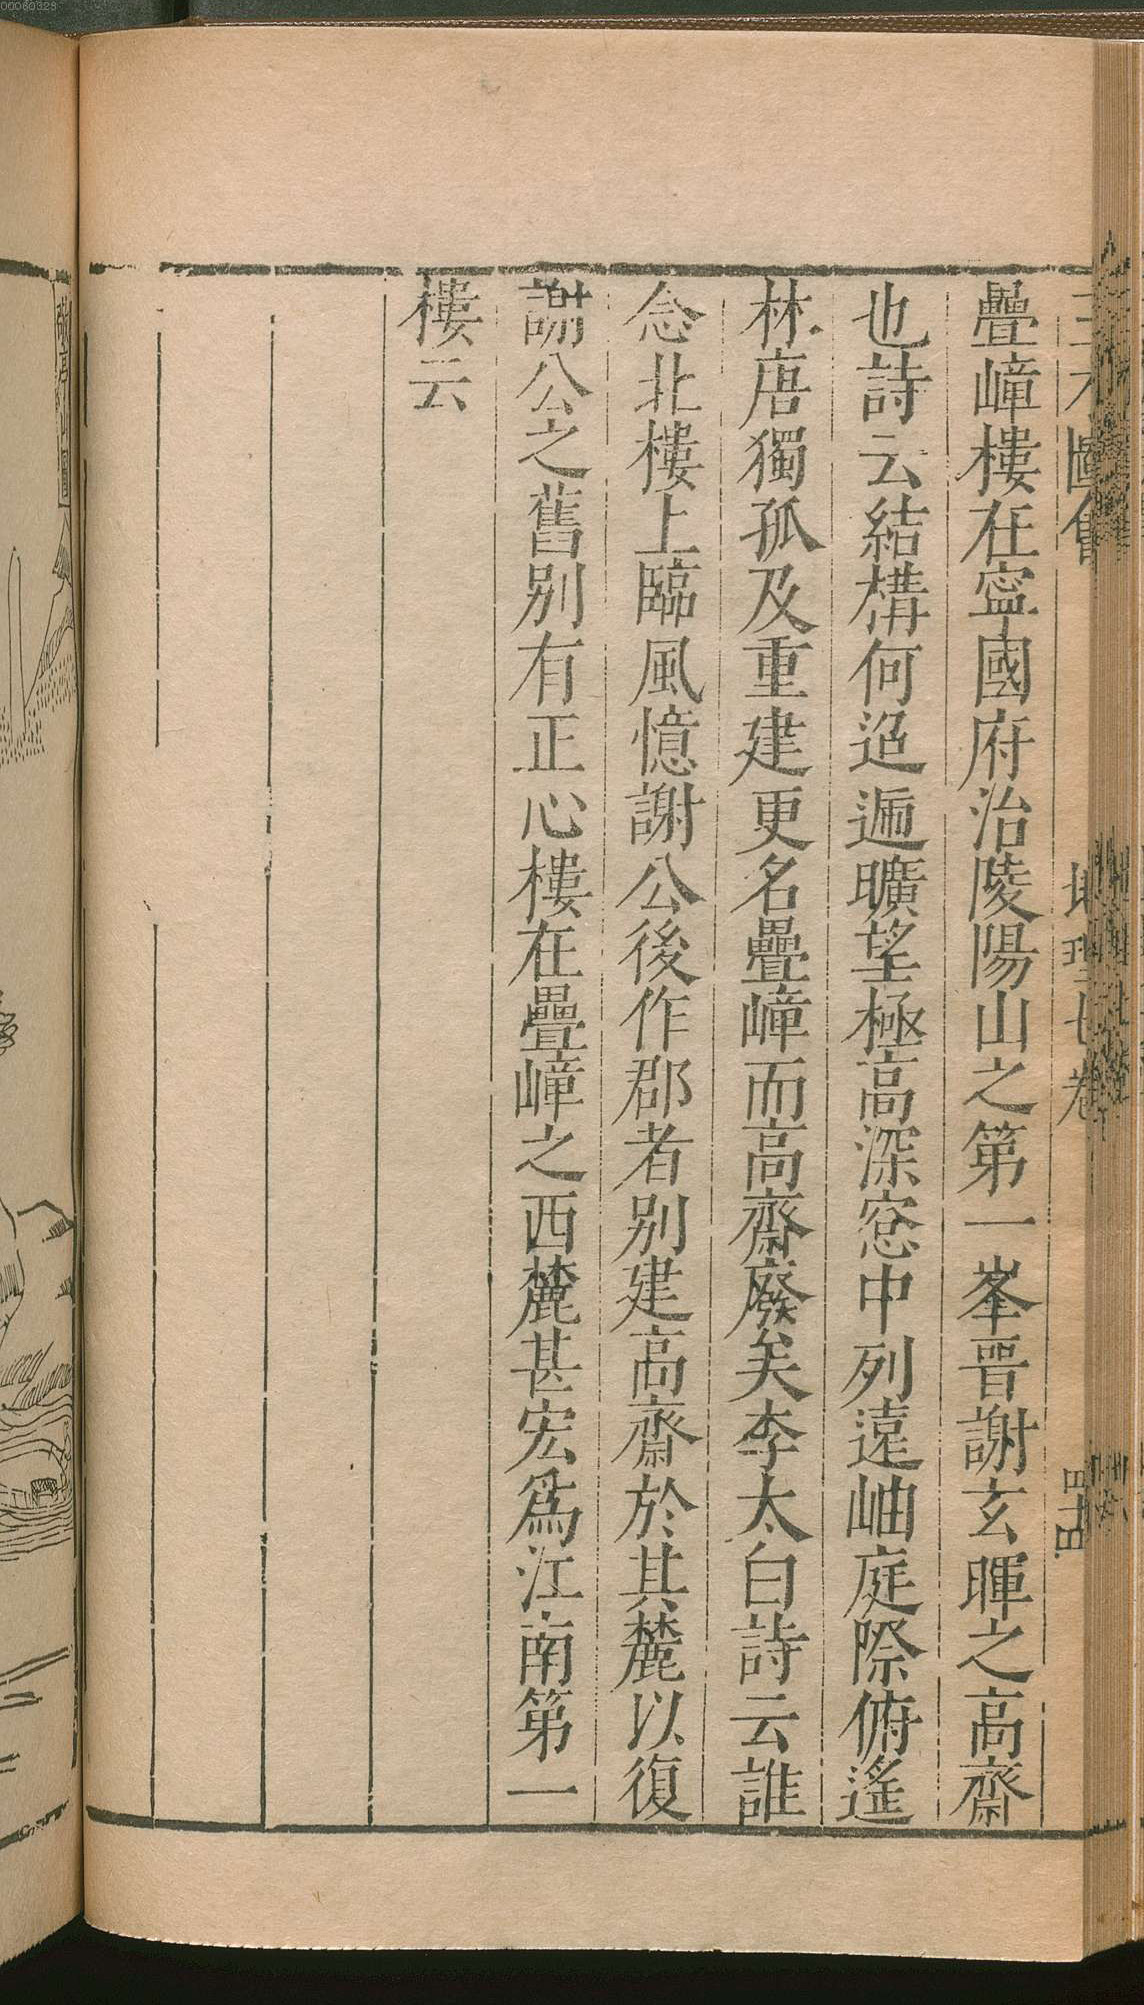 疊嶂樓在寧國府治陵陽山之第一峯晉謝玄暉之高齋
也詩云結構何迢遞曠望極高深窓中列遠岫庭際俯遙
林唐獨孤及重建更名疊嶂而高齋廢矣李太白詩云誰
念北樓上臨風憶謝公後作郡者別建高齋於其麓以復
謝公之舊別有正心樓在疊嶂之西麓甚宏爲江南第一
樓云
地理七卷
00060328